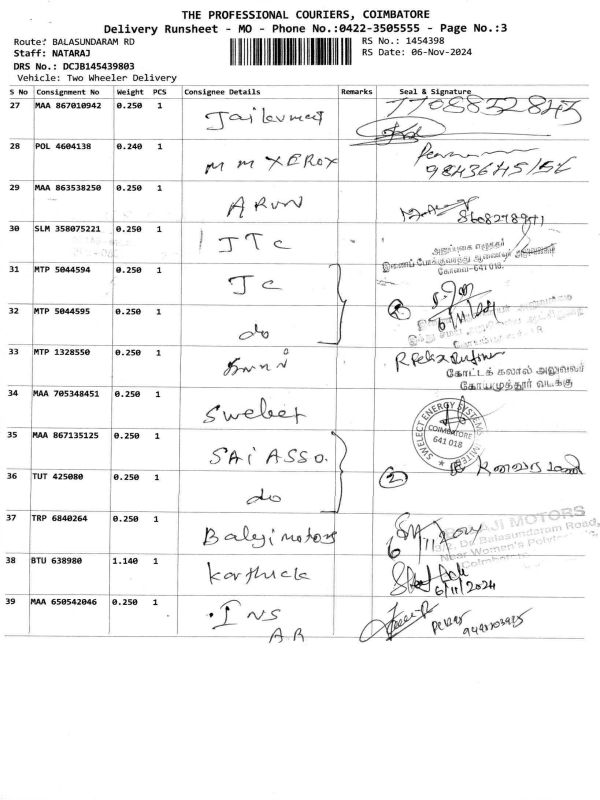 THE PROFESSIONAL COURIERS, COIMBATORE
Delivery Runsheet - MO - Phone No.:0422-3505555 - Page No.:3
Route: BALASUNDARAM RD
RS No.: 1454398
Staff: NATARAJ
RS Date: 06-Nov-2024
DRS No.: DCJB145439803
Vehicle: Two Wheeler Delivery
S No Consignment No Weight PCS Consignee Details Remarks Seal & Signature
27 MAA 867010942 0.250 1 7708852843
28 POL 4604138 0.240 1 MM XEROX
29 MAA 863538250 0.250 1 ARUN
30 SLM 358075221 0.250 1 JTC
அலுவலகம்
கோவை-641 018.
31 MTP 5044594 0.250 1 JC
32 MTP 5044595 0.250 1 do 6/11/2024
33 MTP 1328550 0.250 1 R Felix
கோட்டக் கலால் அலுவலர்
கோயமுத்தூர் வடக்கு
34 MAA 705348451 0.250 1 Swelect
SWELECT ENERGY SYSTEMS LIMITED
COIMBATORE
641 018
35 MAA 867135125 0.250 1 SAI ASSO.
36 TUT 425080 0.250 1 do 2
37 TRP 6840264 0.250 1 Balaji motors 6/11/2024
BALAJI MOTORS
Dr. Balasundaram Road,
Near Women's Polytechnic
Coimbatore
38 BTU 638980 1.140 1 Karthick
6/11/2024
39 MAA 650542046 0.250 1 INS
AR